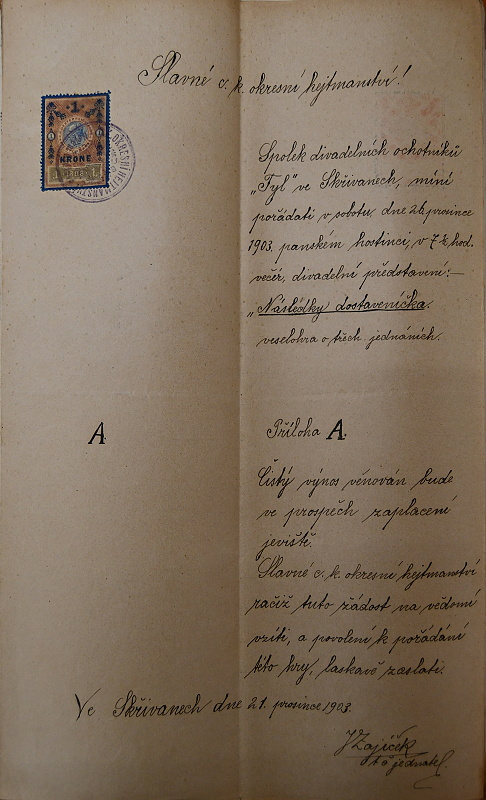 Slavné c. k. okresní hejtmanství!
1
KRONE
Spolek divadelních ochotníků
„Tyl" ve Skřivanech, míní
pořádati v sobotu dne 26. prosince
1903. panském hostinci, v 7½ hod.
večer, divadelní představení:—
„Následky dostaveníčka.
veselohra o třech jednáních.
A
Příloha A.
Čistý výnos věnován bude
ve prospěch zaplacení
jeviště.
Slavné c. k. okresní hejtmanství
račiž tuto žádost na vědomí
vzíti, a povolení k pořádání
této hry, laskavě zaslati.
Ve Skřivanech dne 21. prosince 1903.
J Zajíček
jednatel.